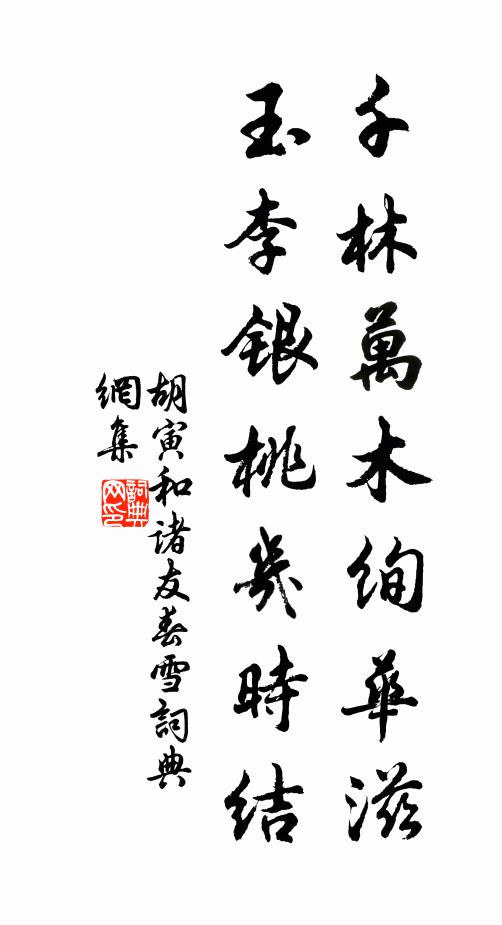 千林萬木絢華滋
玉李銀桃幾時結
胡寅和诸友春雪詞典
網集
詞典
网印